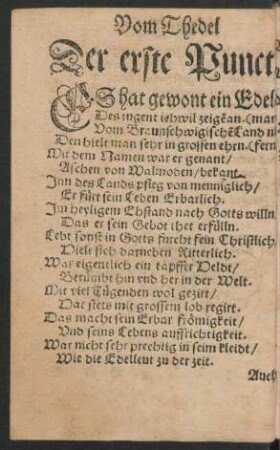 Vom Thedel
Der erste Punct
ES hat gewont ein Edel
Des tugent ich wil zeigē an. (man
Vom Braunschwigischē Land ni
Den hielt man sehr in grossen ehrn. (fern
Mit dem Namen war er genant/
Aschen von Walmoden/ bekant.
Inn des Lands pfleg von menniglich/
Er fürt sein Leben Erbarlich.
Im heyligem Ehstand nach Gotts willn
Das er sein Gebot thet erfülln.
Lebt sonst in Gotts furcht fein Christlich
Hielt sich darneben Ritterlich.
War eigentlich ein tapffer Heldt/
Berümbt hin vnd her in der Welt.
Mit viel Tugenden wol gezirt/
Hat stets mit grossem lob regirt.
Das macht sein Erbar frömigkeit/
Vnd seins Lebens auffrichtigkeit.
War nicht sehr prechtig in seim kleidt/
Wie die Edelleut zu der zeit.
Auch